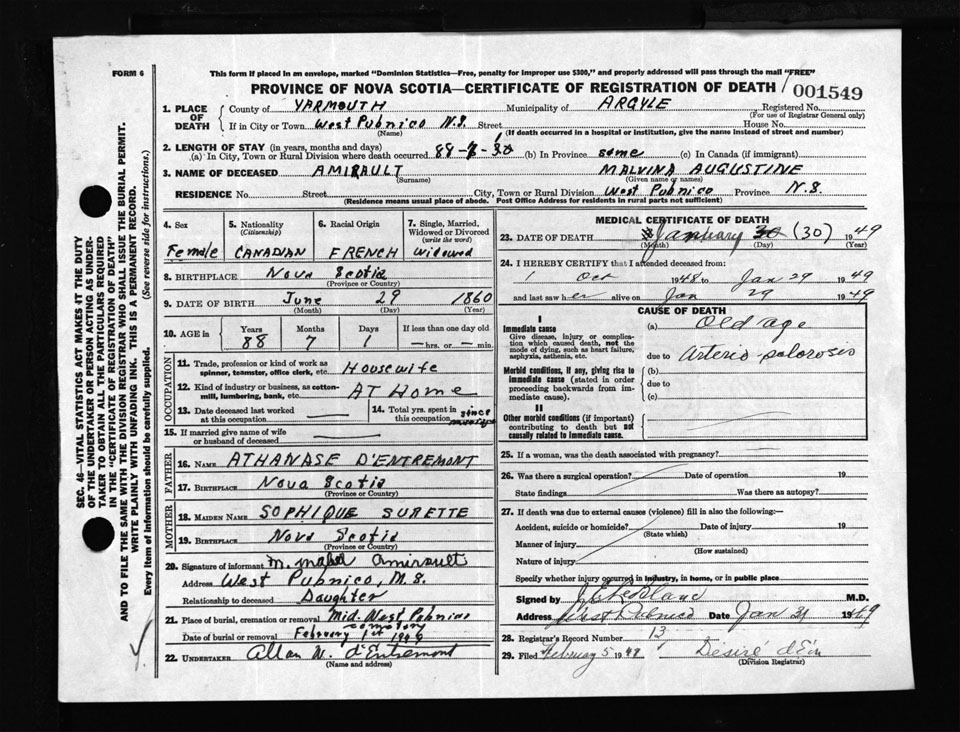 FORM 6
This form if placed in an envelope, marked "Dominion Statistics—Free, penalty for improper use $300," and properly addressed will pass through the mail "FREE"
PROVINCE OF NOVA SCOTIA—CERTIFICATE OF REGISTRATION OF DEATH
001549
1. PLACE OF DEATH
County of YARMOUTH Municipality of ARGYLE Registered No.
(For use of Registrar General only)
If in City or Town West Pubnico N.S. Street House No.
(Name) (If death occurred in a hospital or institution, give the name instead of street and number)
2. LENGTH OF STAY (in years, months and days)
(a) In City, Town or Rural Division where death occurred 88-7-30 (b) In Province same (c) In Canada (if immigrant)
3. NAME OF DECEASED AMIRAULT MALVINA AUGUSTINE
(Surname) (Given name or names)
RESIDENCE No. Street City, Town or Rural Division West Pubnico Province N.S.
(Residence means usual place of abode. Post Office Address for residents in rural parts not sufficient)
4. Sex
Female
5. Nationality
(Citizenship)
CANADIAN
6. Racial Origin
FRENCH
7. Single, Married, Widowed or Divorced
(write the word)
Widowed
8. BIRTHPLACE Nova Scotia
(Province or Country)
9. DATE OF BIRTH June 29 1860
(Month) (Day) (Year)
10. AGE in
Years Months Days If less than one day old
88 7 1 —hrs. or —min.
OCCUPATION
11. Trade, profession or kind of work as spinner, teamster, office clerk, etc. Housewife
12. Kind of industry or business, as cotton-mill, lumbering, bank, etc. AT Home
13. Date deceased last worked at this occupation
14. Total yrs. spent in this occupation since
15. If married give name of wife or husband of deceased
FATHER
16. NAME ATHANASE D'ENTREMONT
17. BIRTHPLACE Nova Scotia
(Province or Country)
MOTHER
18. MAIDEN NAME SOPHIQUE SURETTE
19. BIRTHPLACE Nova Scotia
(Province or Country)
20. Signature of informant M. Mabel Amirault
Address West Pubnico, N.S.
Relationship to deceased Daughter
21. Place of burial, cremation or removal Mid. West Pubnico
cemetery
Date of burial or removal February 1st
22. UNDERTAKER Allan W. d'Entremont
(Name and address)
MEDICAL CERTIFICATE OF DEATH
23. DATE OF DEATH January 30 (30) 1949
(Month) (Day) (Year)
24. I HEREBY CERTIFY that I attended deceased from:
1 Oct 1948 to Jan 29 1949
and last saw her alive on Jan 29 1949
CAUSE OF DEATH
I
Immediate cause
Give disease, injury or complication which caused death, not the mode of dying, such as heart failure, asphyxia, asthenia, etc.
(a) Old age
due to
Morbid conditions, if any, giving rise to immediate cause (stated in order proceeding backwards from immediate cause).
(b)
due to
(c)
II
Other morbid conditions (if important) contributing to death but not causally related to immediate cause.
25. If a woman, was the death associated with pregnancy?
26. Was there a surgical operation? Date of operation 19
State findings Was there an autopsy?
27. If death was due to external causes (violence) fill in also the following:—
Accident, suicide or homicide? Date of injury 19
(State which)
Manner of injury
(How sustained)
Nature of injury
Specify whether injury occurred in industry, in home, or in public place
Signed by LeBlanc M.D.
Address West Pubnico Date Jan 31 1949
28. Registrar's Record Number 13
29. Filed February 5 1949 Desire d'En
(Division Registrar)
SEC. 46—VITAL STATISTICS ACT MAKES IT THE DUTY
OF THE UNDERTAKER OR PERSON ACTING AS UNDER-
TAKER TO OBTAIN ALL THE PARTICULARS REQUIRED
IN THE "CERTIFICATE OF REGISTRATION OF DEATH"
AND TO FILE THE SAME WITH THE DIVISION REGISTRAR WHO SHALL ISSUE THE BURIAL PERMIT.
WRITE PLAINLY WITH UNFADING INK. THIS IS A PERMANENT RECORD.
Every item of information should be carefully supplied. (See reverse side for instructions.)